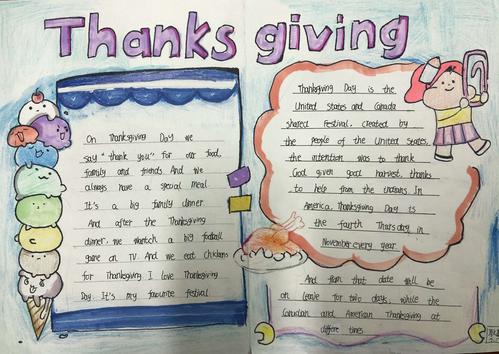 Thanks giving
On Thanksgiving Day we
say "thank you" for our food,
family and friends. And we
always have a special meal.
It's a big family dinner.
And after the Thanksgiving
dinner, we watch a big football
game on TV. And we eat chickens
for Thanksgiving. I love Thanksgiving
Day. It's my favourite festival
Thanksgiving Day is the
United States and Canada
shared Festival, created by
the people of the United States,
the intention was to thank
God given good harvest, thanks
to help from the Indians. In
America, Thanksgiving Day is
the fourth Thursday in
November every year.
And from that date will be
on leave for two days, while the
Canadian and American Thanksgiving at
different times